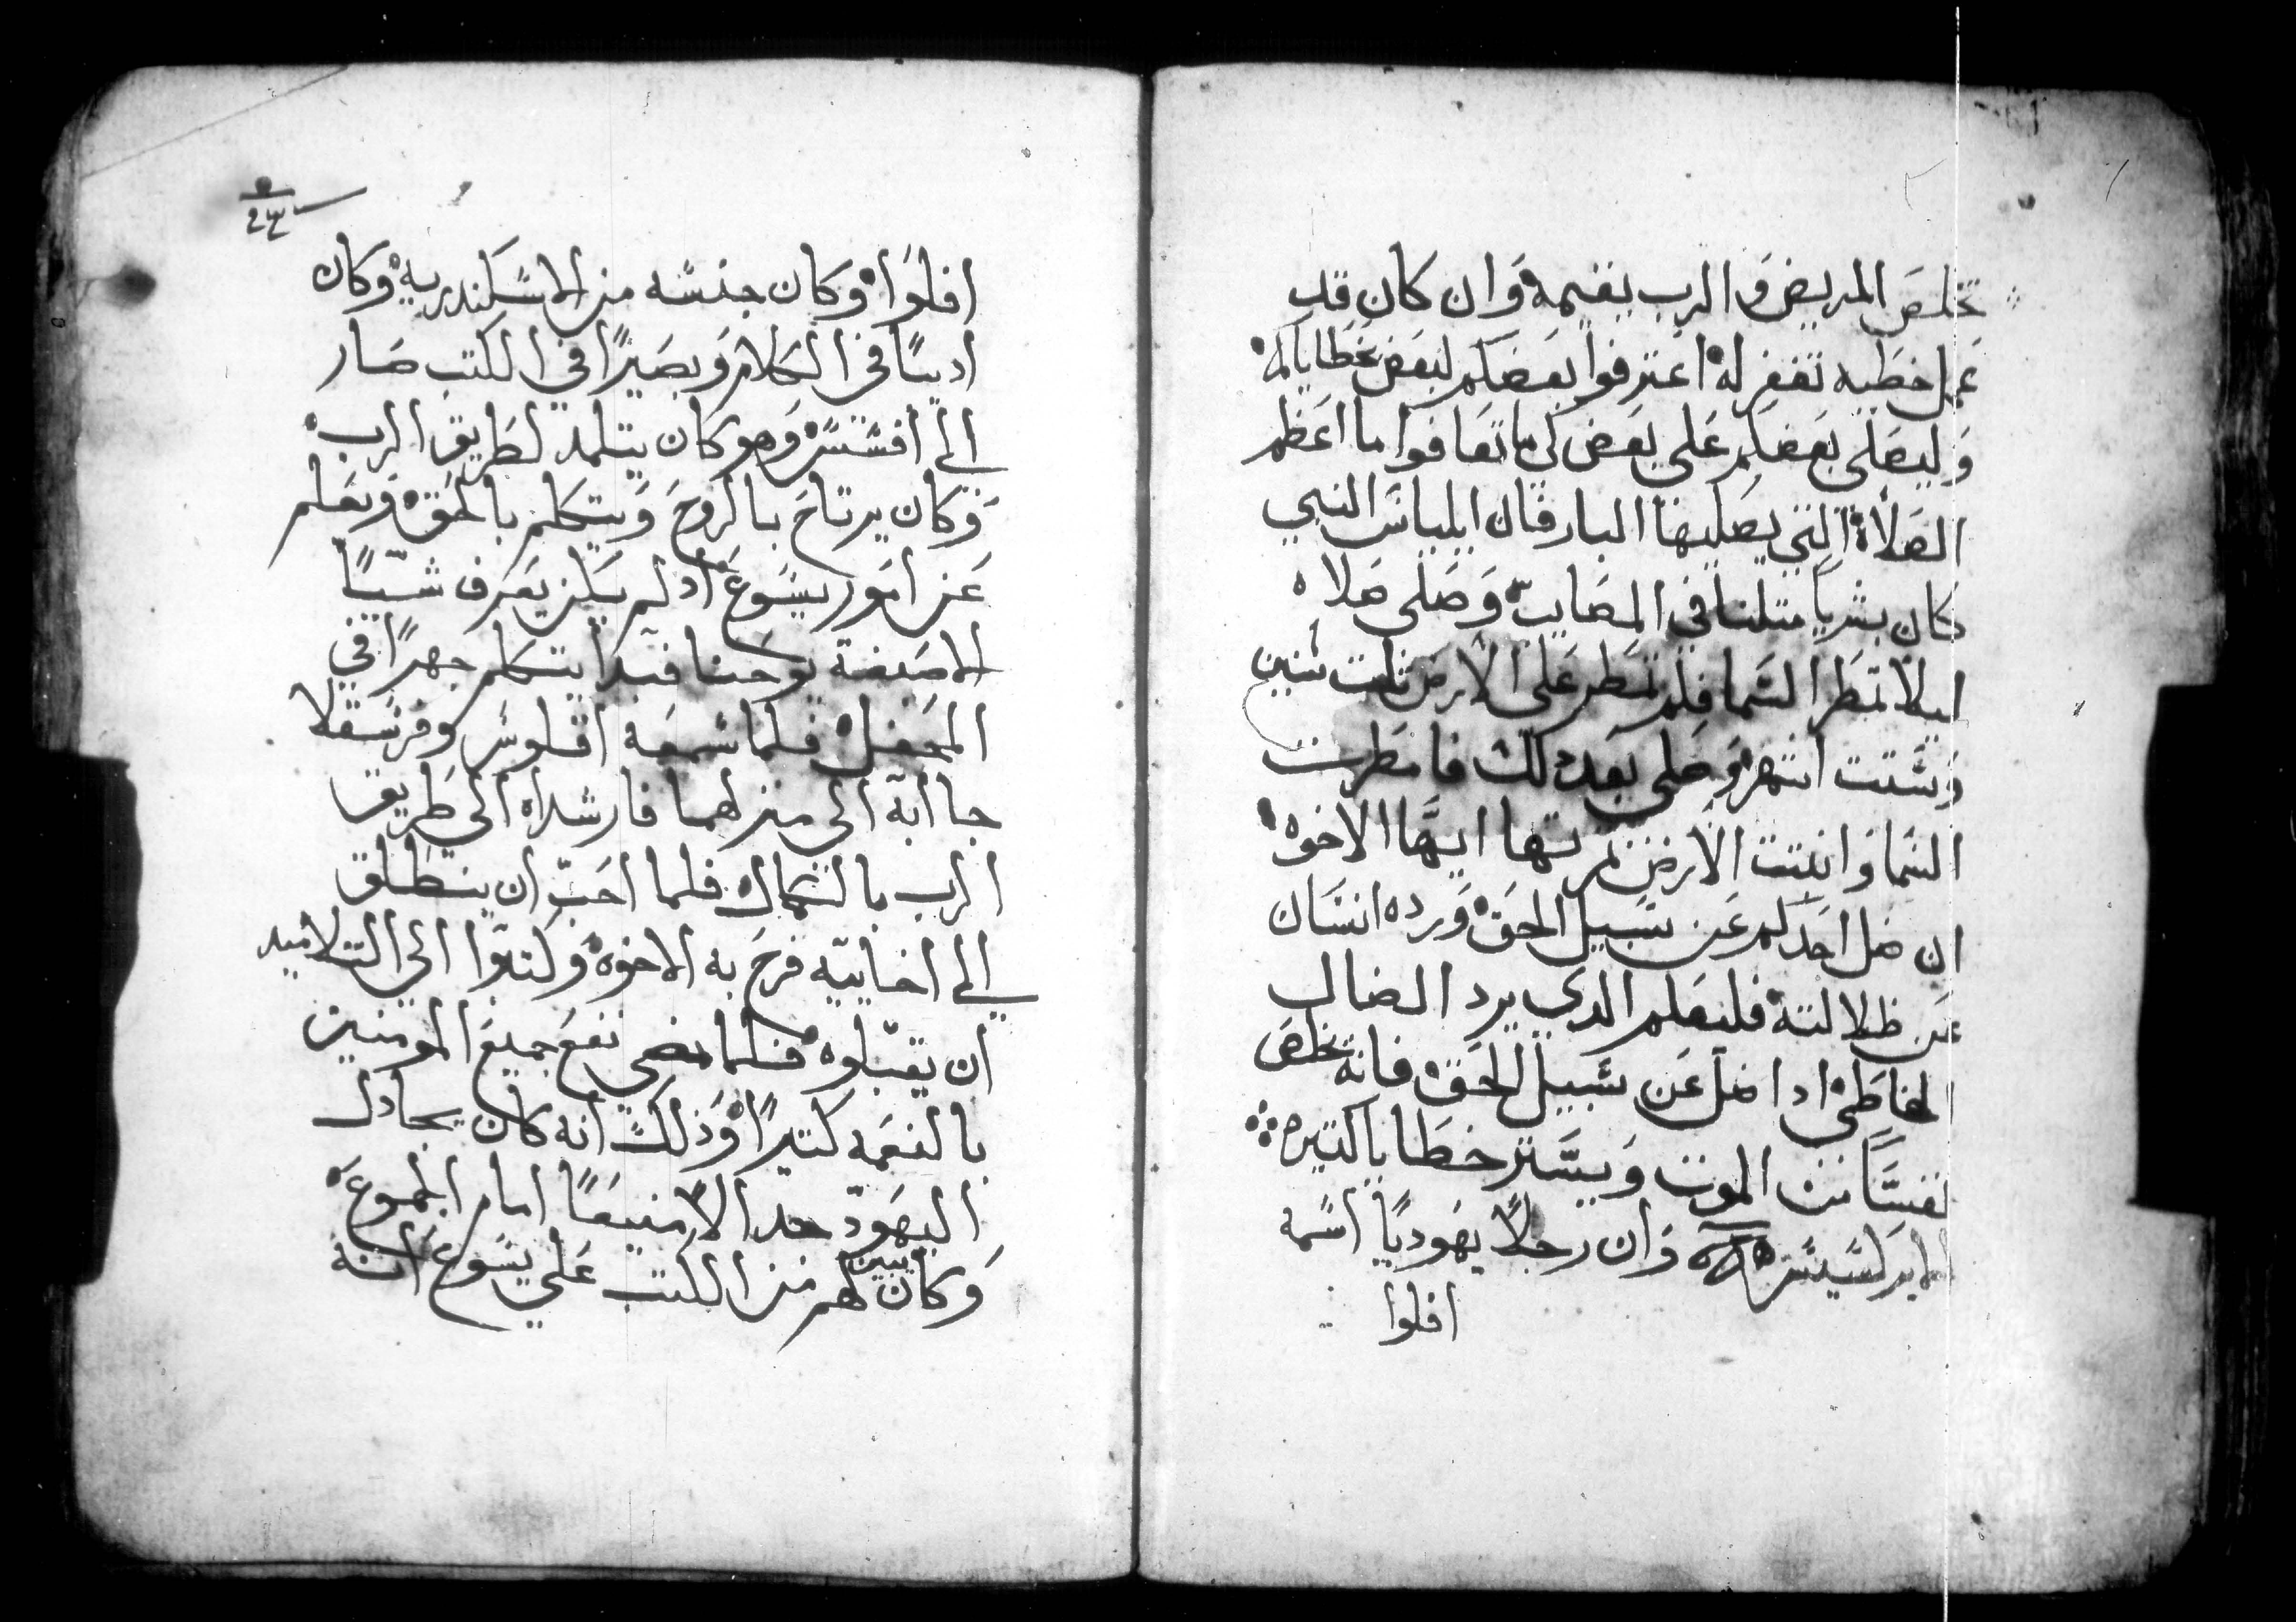 تخلص المريض والرب يقيمه وان كان قد
عمل خطيه تغفر له اعترفوا بعضكم لبعض بخطاياكم
وليصلى بعضكم على بعض لكيما تعافوا ما اعظم
الصلاة التي يصليها البار فان ايلياس النبي
كان بشرياً متلنا في المصايب وصلى صلاه
ليلا تمطر السما فلم تمطر على الارض تلت سنين
وستت اشهر وصلى بعد دلك فامطرت
السما وانبتت الارض تمرتها ايها الاخوه
ان ضل احدكم عن سبيل الحق ورده انسان
عن ظلالته فليعلم الدي يرد الضال
الخاطي ادا ضل عن سبيل الحق فانه يخلص
نفسًا من الموت ويستر خطايا كتيره
الابركسيس وان رجلاً يهودياً اسمه
افلوا
٢٣
افلوا وكان جنسه من الاسكندريه وكان
اديبًا في الكلام وبصيرًا في الكتب صار
الي افسس وهو كان يتلمد لطريق الرب
وكان يرتاح بالروح ويتكلم بالحق ويعلم
عن امور يسوع اد لم يكن يعرف شيًا
الا صبغة يوحنا فبدا يتكلم جهرًا في
المحفل فلما سمعه اقلوس وفرسقلا
جاابه الى منزلهما فارشداه الى طريق
الرب بالكمال فلما احب ان ينطلق
الي اخاييه فرح به الاخوه وكتبوا الي التلاميد
ان يقبلوه فلما مضي نفع جميع المومنين
بالنعمه كتيرًا وذلك انه كان يجادل
اليهود جدالا منيعًا امام الجموع
وكان يبين لهم من الكتب على يسوع انه